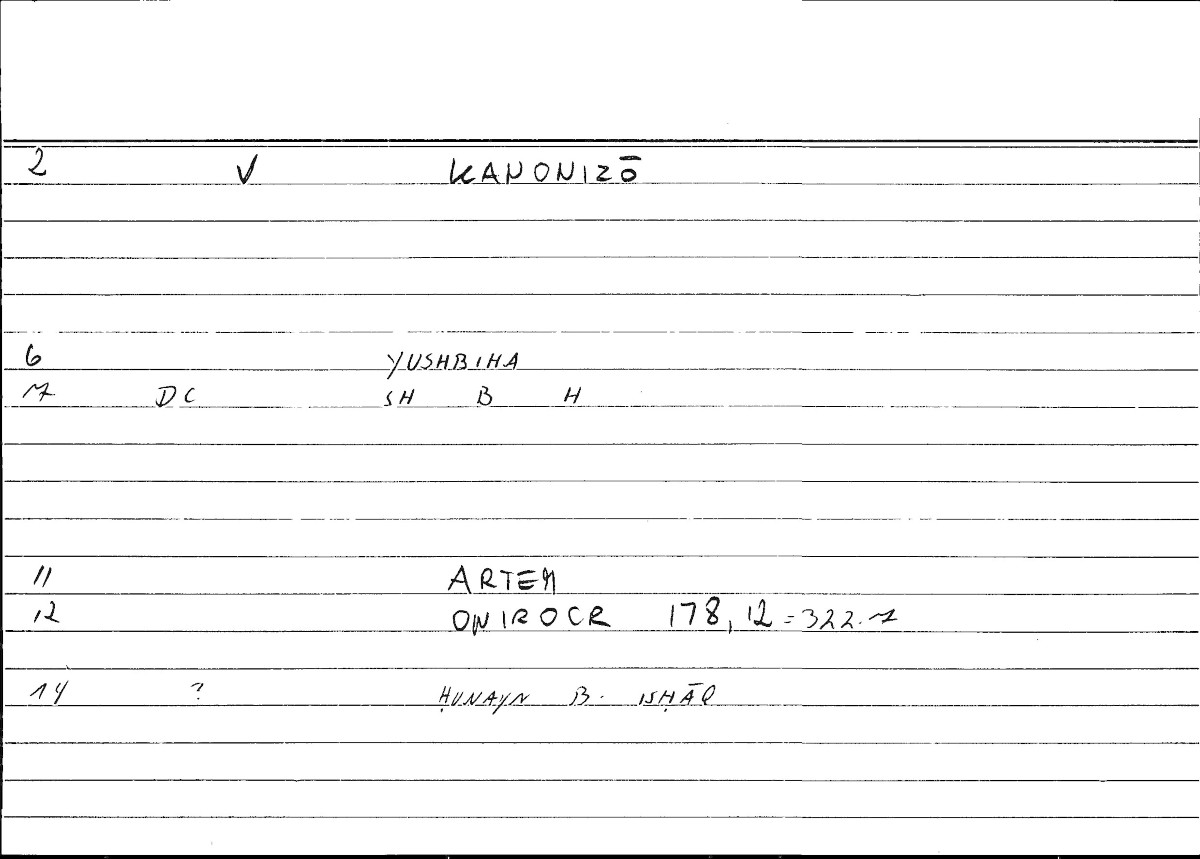 2 V KANONIZŌ
6 YUSHBIHA
7 DC SH B H
11 ARTEM
12 ONIROCR 178, 12 = 322.7
14 ? ḤUNAYN B. ISḤĀQ